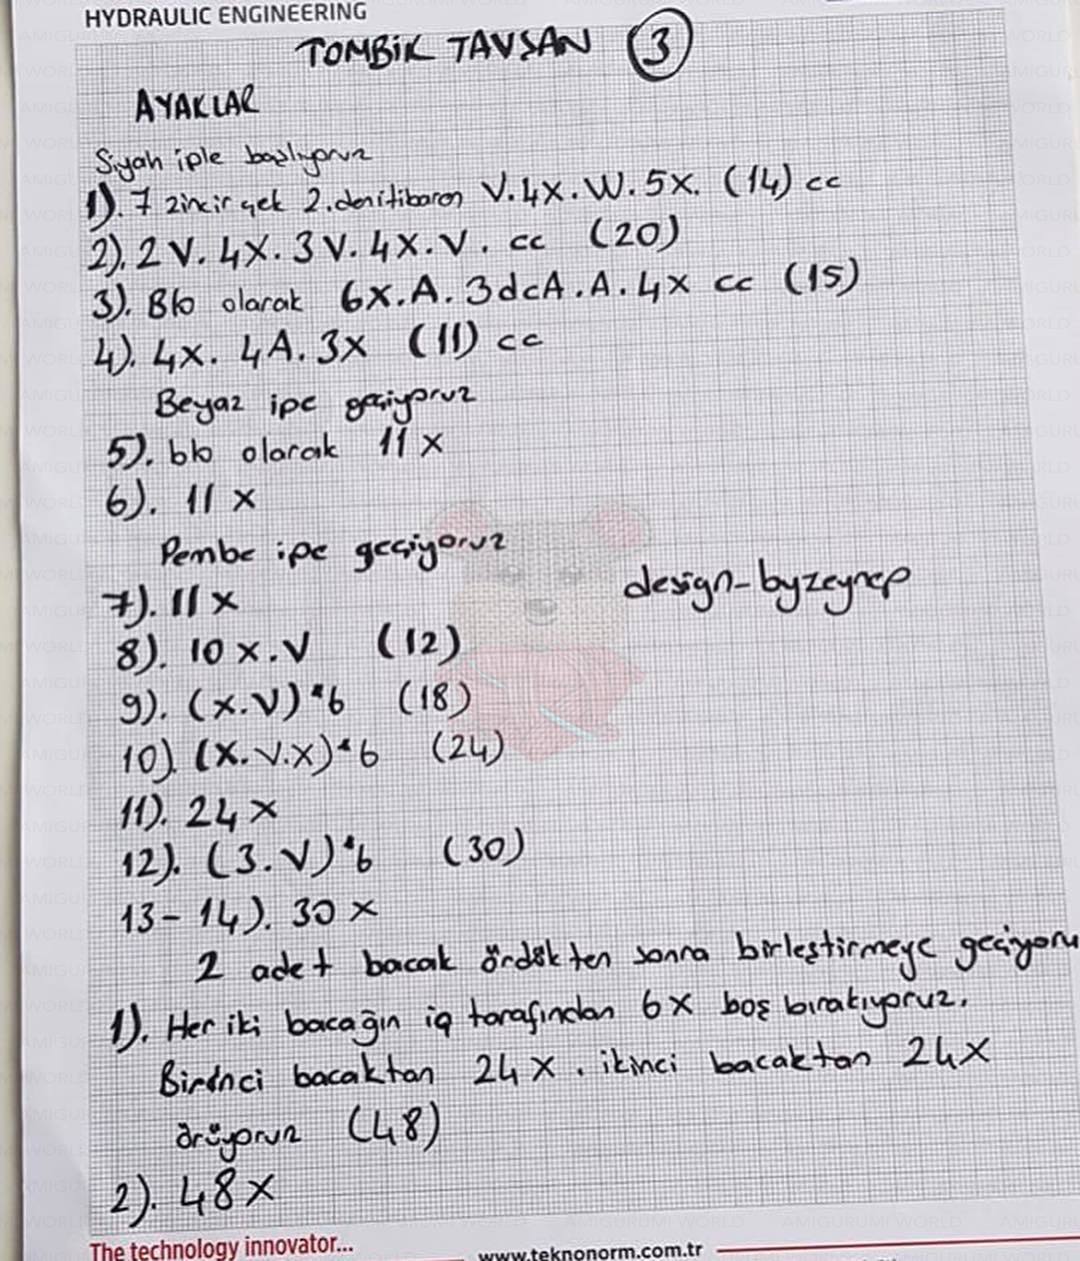 HYDRAULIC ENGINEERING
TOMBİK TAVŞAN 3
AYAKLAR
Siyah iple başlıyoruz
1). 7 zincir çek 2.den itibaren V.4X.W.5X. (14) cc
2). 2V. 4X. 3V. 4X.V. cc (20)
3). Blo olarak 6X.A. 3dcA.A.4X cc (15)
4). 4X. 4A. 3X (11) cc
Beyaz ipe geçiyoruz
5). blo olarak 11 X
6). 11 X
Pembe ipe geçiyoruz
design-byzeynep
7). 11 X
8). 10 X.V (12)
9). (X.V)*6 (18)
10). (X.V.X)*6 (24)
11). 24 X
12). (3.V)*6 (30)
13-14). 30 X
2 adet bacak ördükten sonra birleştirmeye geçiyoru
1). Her iki bacağın iç tarafından 6X boş bırakıyoruz.
Birinci bacaktan 24 X. ikinci bacaktan 24X
örüyoruz (48)
2). 48X
The technology innovator...
www.teknonorm.com.tr